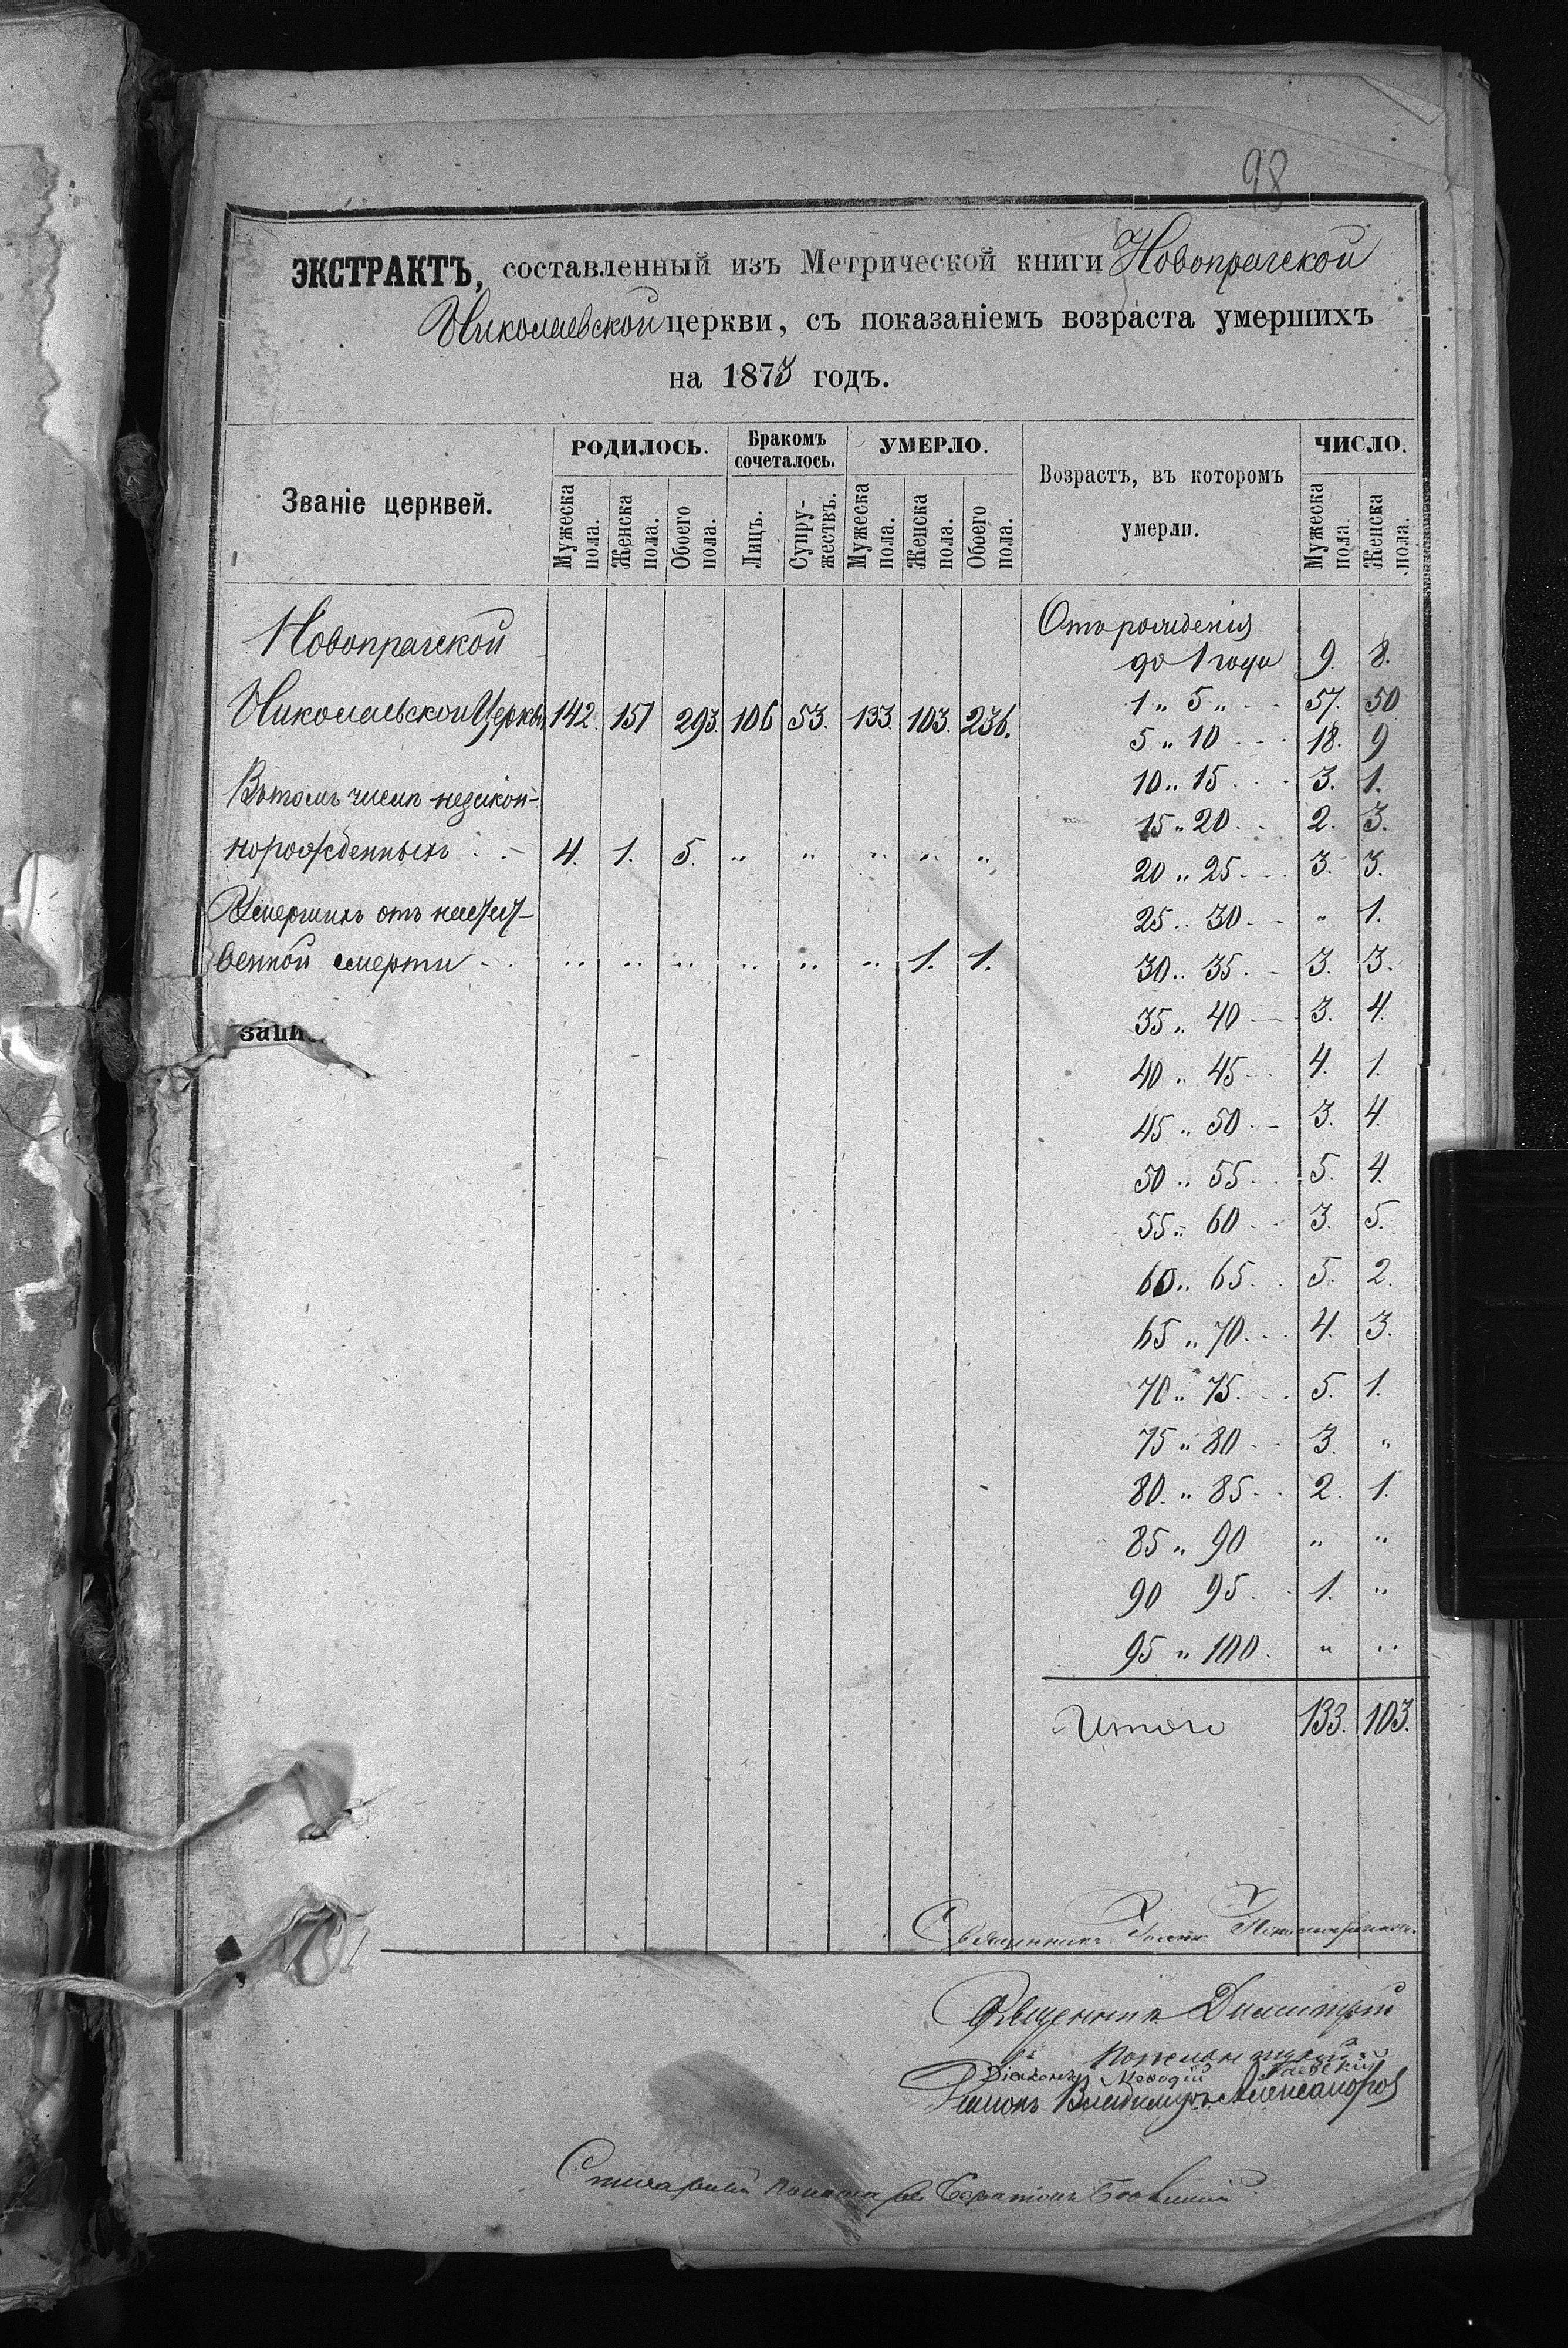 98
ЭКСТРАКТЪ, составленный изъ Метрической книги Новопрагской
Николаевской церкви, съ показаніемъ возраста умершихъ
на 1873 годъ.
Званіе церквей.
РОДИЛОСЬ. Бракомъ сочеталось. УМЕРЛО. Возрастъ, въ которомъ умерли. ЧИСЛО.
Мужеска пола. Женска пола. Обоего пола. Лицъ. Супружествъ. Мужеска пола. Женска пола. Обоего пола. Мужеска пола. Женска пола.
Новопрагской
Николаевской Церкви 142. 151 293. 106 53. 133. 103. 236.
Въ томъ числѣ незакон-
норожденныхъ . - 4. 1. 5. " " " " "
Умершихъ отъ насильст-
венной смерти - . " " " " " " 1. 1.
запи
Отъ рожденія
до 1 года 9. 8.
1 " 5 " - - 57. 50
5 " 10 - - - 18. 9
10 " 15 - - - 3. 1.
15 " 20 - - 2. 3.
20 " 25 - - 3. 3.
25 " 30 - - " 1.
30 " 35 - - 3. 3.
35 " 40 - - 3. 4.
40 " 45 - - 4. 1.
45 " 50 - - 3. 4.
50 " 55 - - 5. 4.
55 " 60 - - 3. 5.
60 " 65 - - 5. 2.
65 " 70 - - - 4. 3.
70 " 75 - - - 5. 1.
75 " 80 - - 3. "
80. " 85 - - 2. 1.
85 " 90 " "
90 95 - - 1. "
95 " 100. " "
Итого 133. 103.
Священникъ
Священникъ Димитрій
Діаконъ Меѳодій
Діаконъ Владимиръ Александров